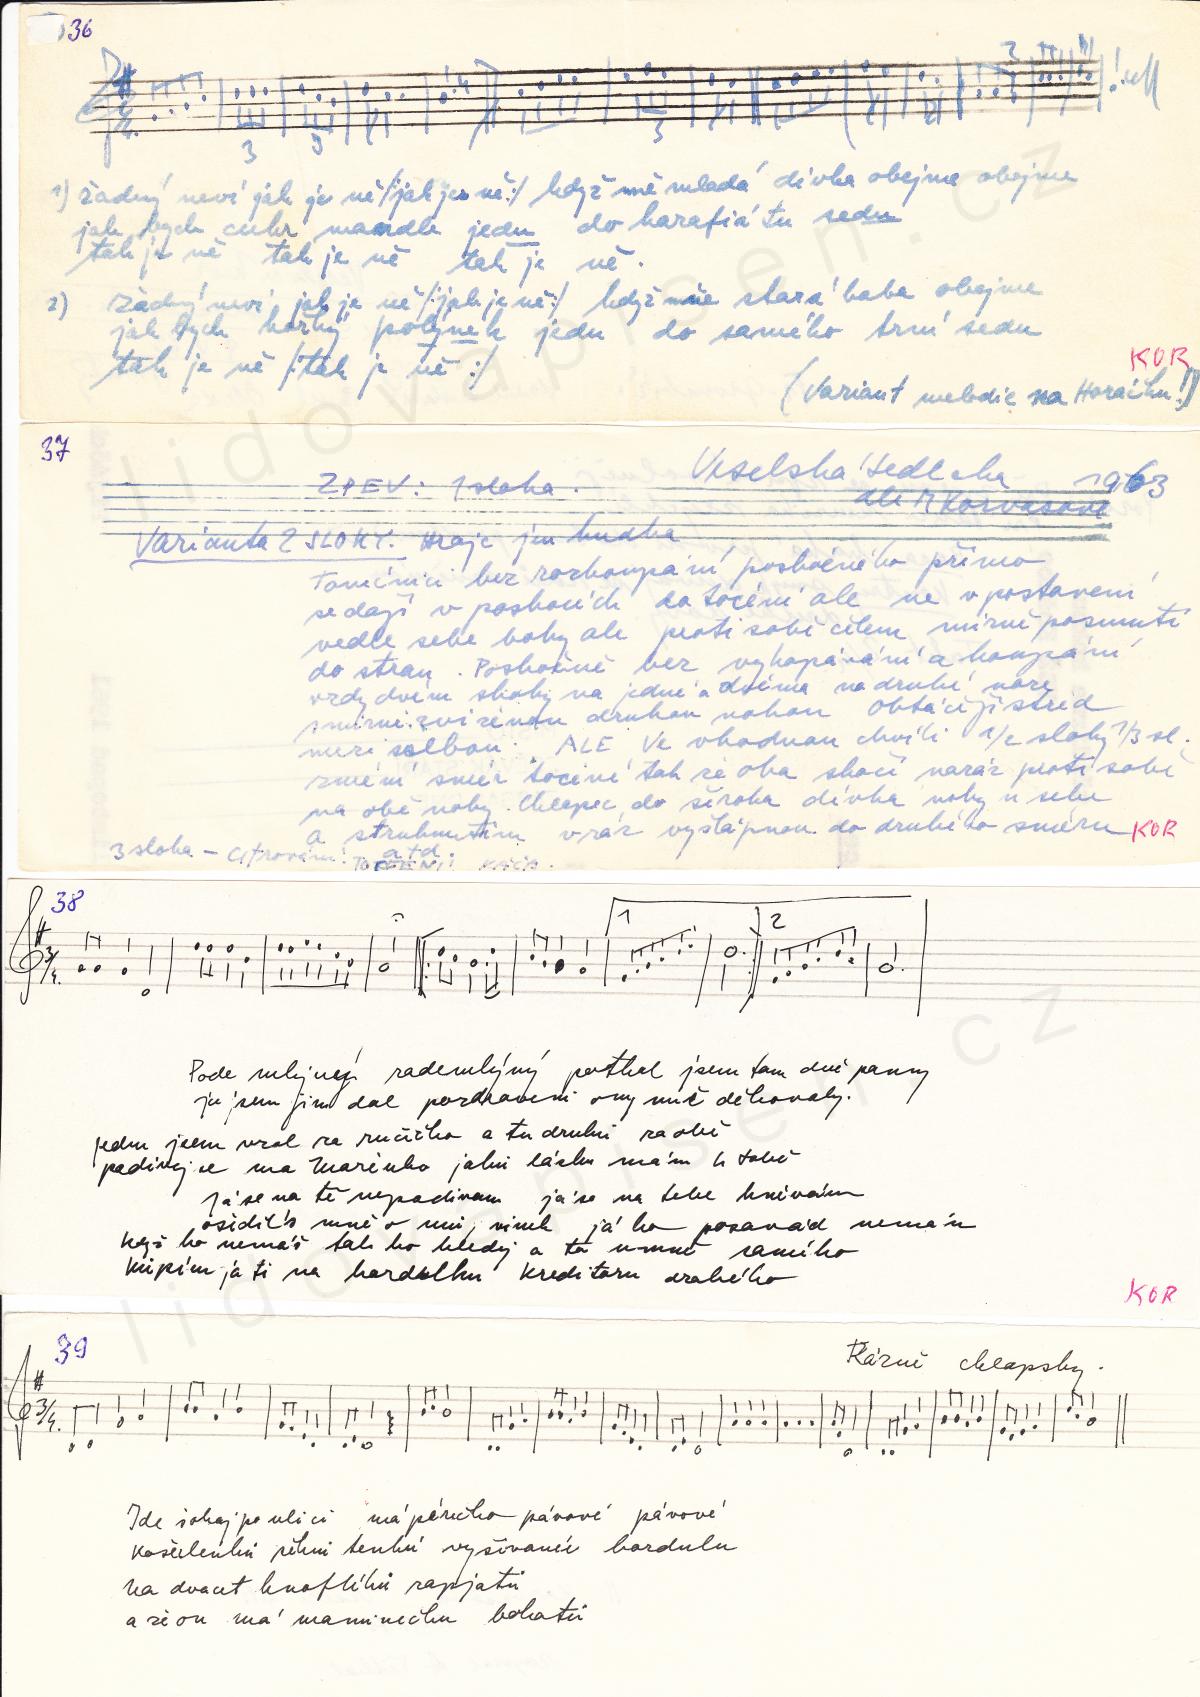 36
3 3 3 2
1) žádný neví jak je ně /:jak je ně:/ když mně mladá dívka obejme obejme
jak bych cukr mandle jedu do karafiátu sedu
tak je ně tak je ně tak je ně.
2) žádný neví jak je ně /:jak je ně:/ když mně stará baba obejme
jak bych horký polynek jedu do samého trní sedu
tak je ně /:tak je ně:/
KOR
(Variant melodie na Horácku!)
37
ZPEV: 1 sloha. Veselská sedlcka 1963
dle M Korvasové
Varianta 2 SLOKY: Hraje jen hudba
Tanečníci bez rozhoupání poskočného přímo
se dají v poskocích do točení ale ne v postavení
vedle sebe boky ale proti sobě čelem mírně posunutí
do stran. Poskočně bez vykopávání a houpání
vzdy dvěm skoky na jedné a dvěma na druhé noze
s mírně zviženou druhou nohou obtáčejí střed
mezi sebou. ALE Ve vhodnou chvíli 1/2 sloky 1/3 sl.
změní směr točení tak že oba skočí naráz proti sobě
na obě nohy. Chlapec do široka dívka nohy u sebe
a vráz vyšlápnou do druhého směru KOR
3 sloha – atd.
38
3/4 1 2
Pode mlejnem nademlýný potkal jsem tam dvě panny
ja jsem jim dal pozdravení ony mně děkovaly.
jednu jsem vzal za ručičko a tu druhú za obě
padivej se ma Marénko jakú lásku mám k tobě
Já se na tě nepadívam já se na tebe hněvám
ošidil's mně o můj vínek já ho posavád nemám
Když ho nemáš tak ho hledej a to u mně samého
kúpím já ti na kordulku kreditoru drahého
KOR
39
Rázně chlapsky.
3/4
Ide šohaj po ulici má pérečko pávové pávové
košulenku tenkú vyšívanú kordulu
na dvacet knoflíků zapjatú
a že on má maminečku bohatú
lidovapisen.cz
lidovapisen.cz